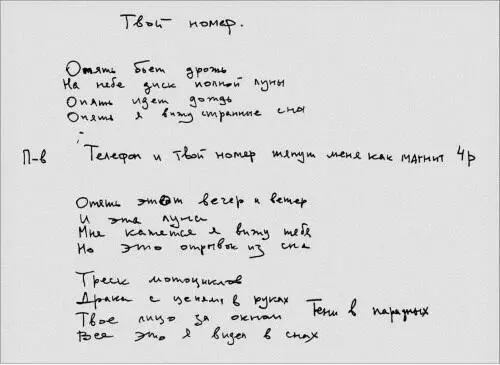 Твой номер.
Опять бьет дрожь
На небе диск полной луны
Опять идет дождь
Опять я вижу странные сны
П-в Телефон и твой номер тянут меня как магнит 4р
Опять этот вечер и ветер
И эта луна
Мне кажется я вижу тебя
Но это отрывок из сна
Треск мотоциклов
Драки с цепями в руках
Твое лицо за окном Тени в парадных
Все это я видел в снах